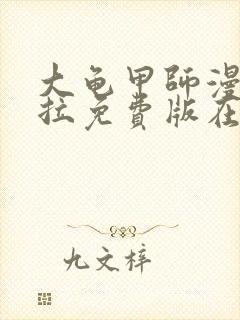 大龟甲师漫
拉免费版在
九文梓